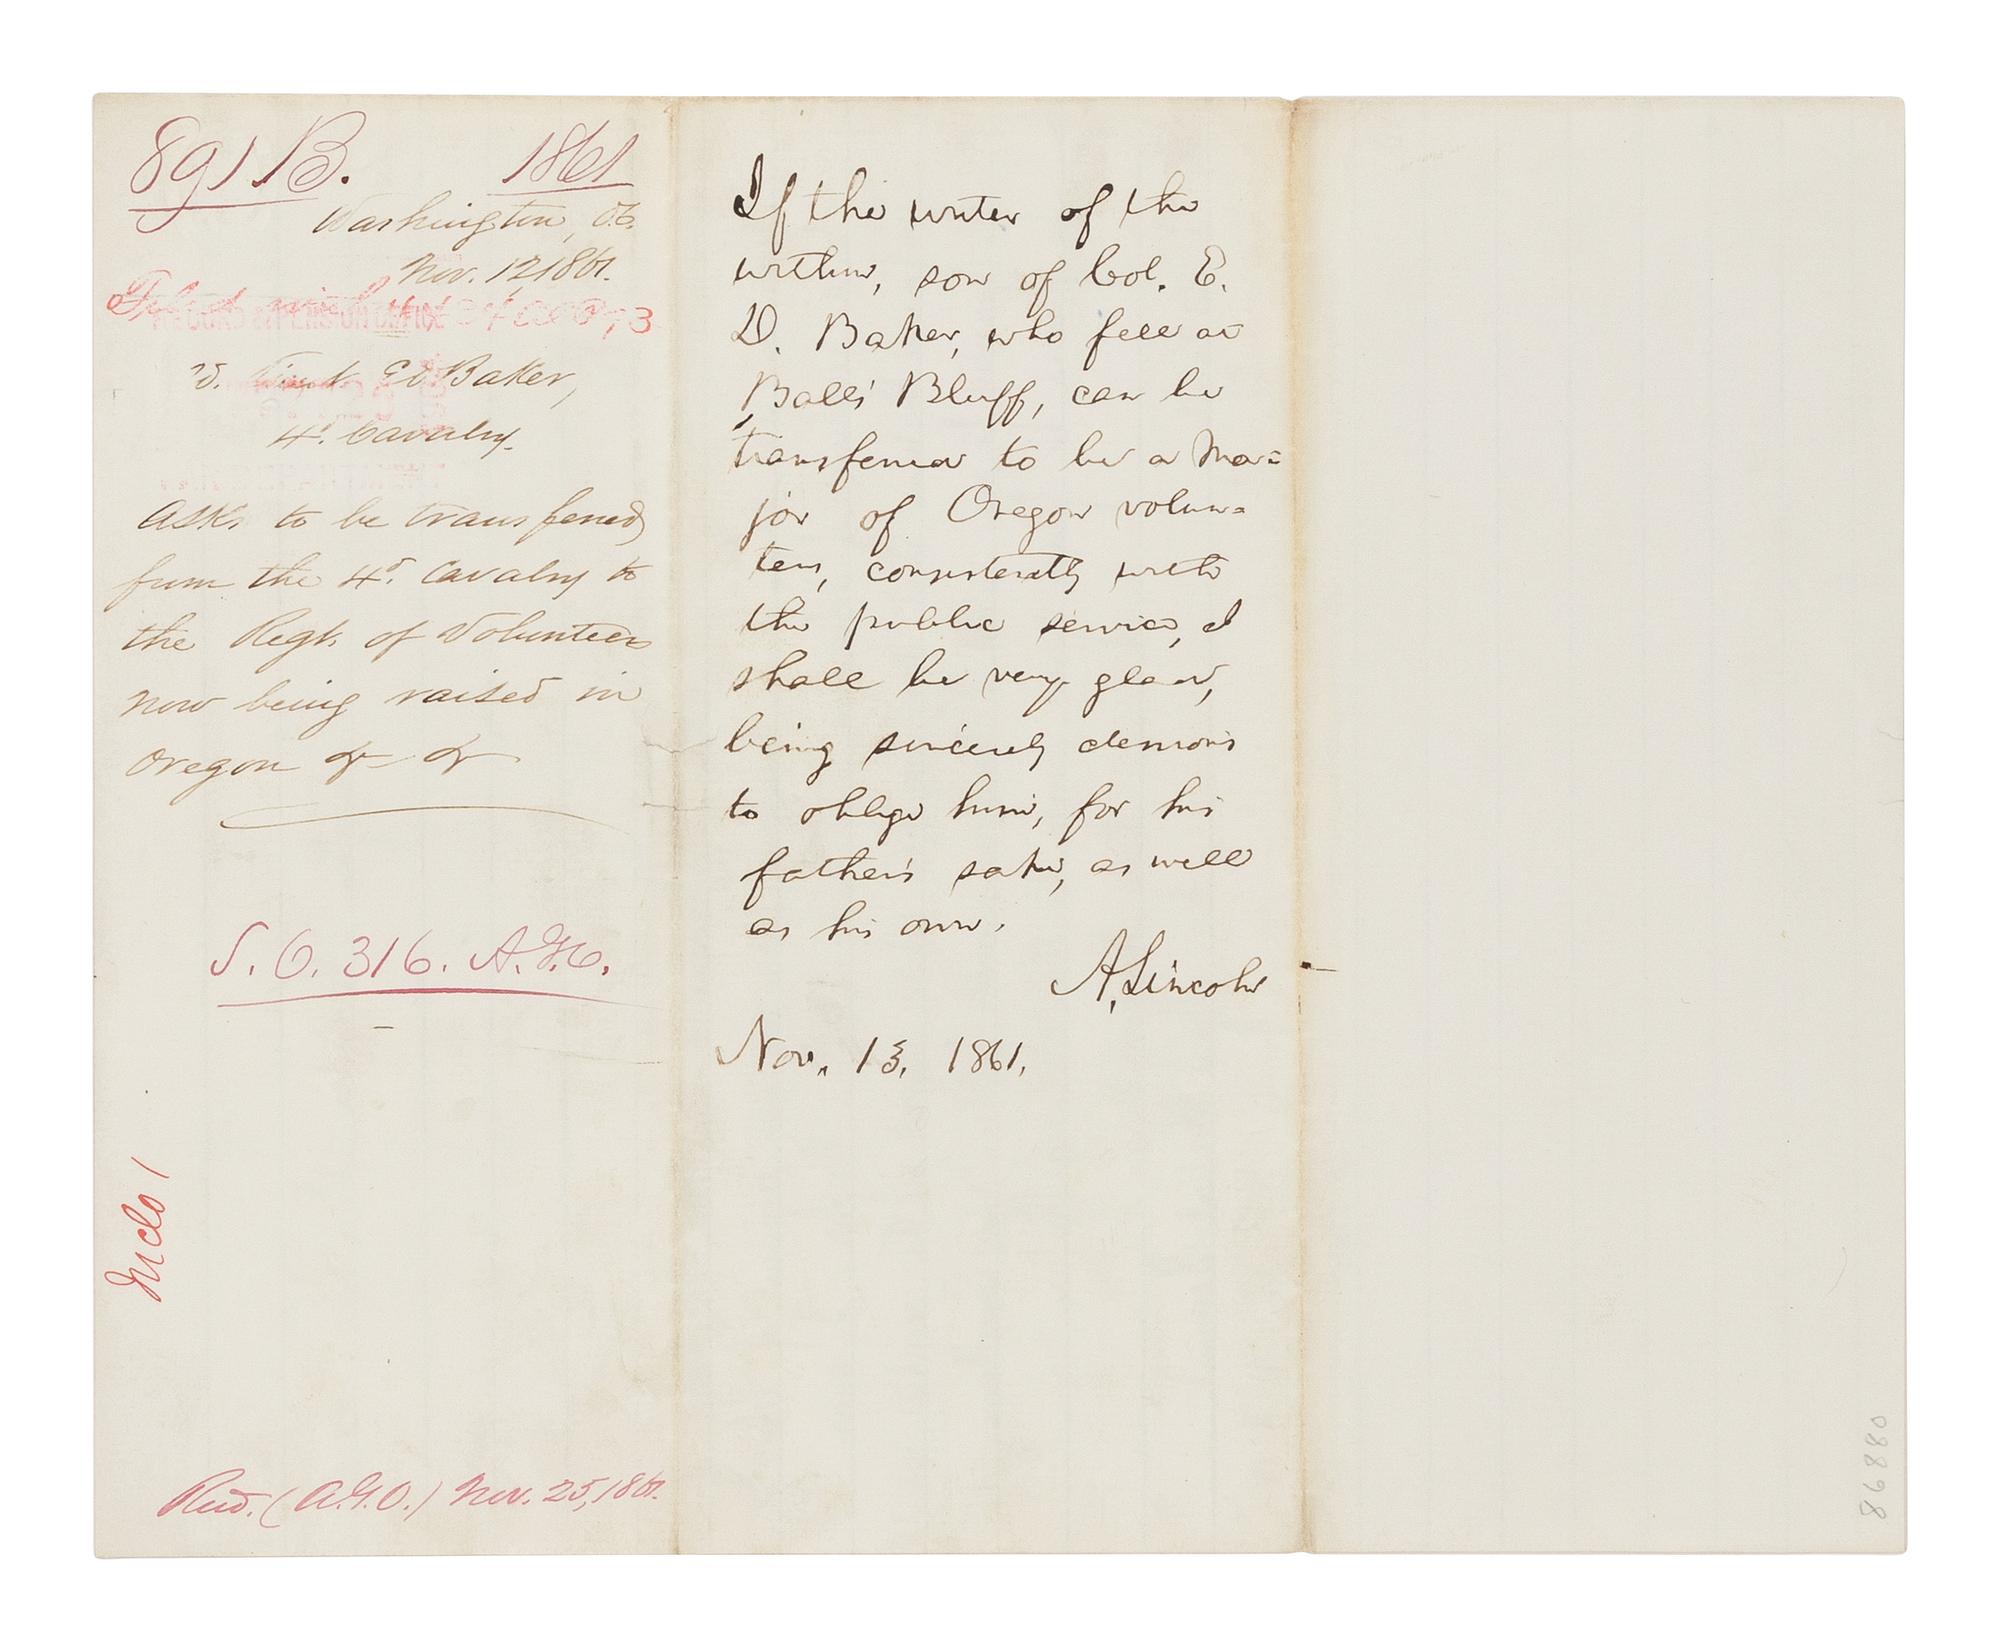 891 B. 1861
Washington, D.C.
Nov. 12, 1861.
Filed with
RECORD & PENSION OFFICE
Ed Baker,
4th Cavalry.
Asks to be transferred
from the 4th Cavalry to
the Regt. of Volunteers
now being raised in
Oregon &c &c
S. O. 316. A.G.O.
Inclo 1
Recd. (A.G.O.) Nov. 25, 1861.
If the writer of the
within, son of Col. E.
D. Baker, who fell at
Ball's Bluff, can be
transferred to be a Ma=
jor of Oregon volun=
teers, consistently with
the public service, I
shall be very glad,
being sincerely desirous
to oblige him, for his
father's sake, as well
as his own.
A. Lincoln
Nov. 13, 1861.
86880